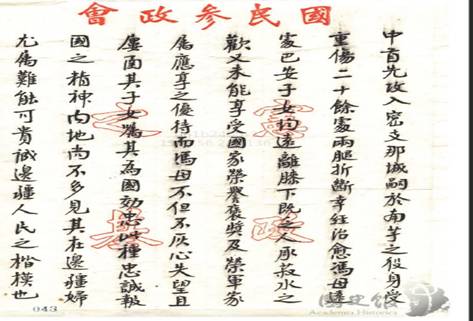 國民參政會
中首先攻入密支那城嗣於南芋之役身受
重傷二十餘處兩腿折斷幸經治愈馮母遠
處巴安子女均遠離膝下既乏人承叔水之
歡又未能享受國家榮譽褒獎及榮軍家
屬應享之優待而馮母不但不灰心失望且
屢函其子女囑其為國効忠此種忠誠報
國之精神內地尚不多見其在邊疆婦
尤為難能可貴誠邊疆人民之楷模也
憲政
之基
043
國史館
Academia Historica